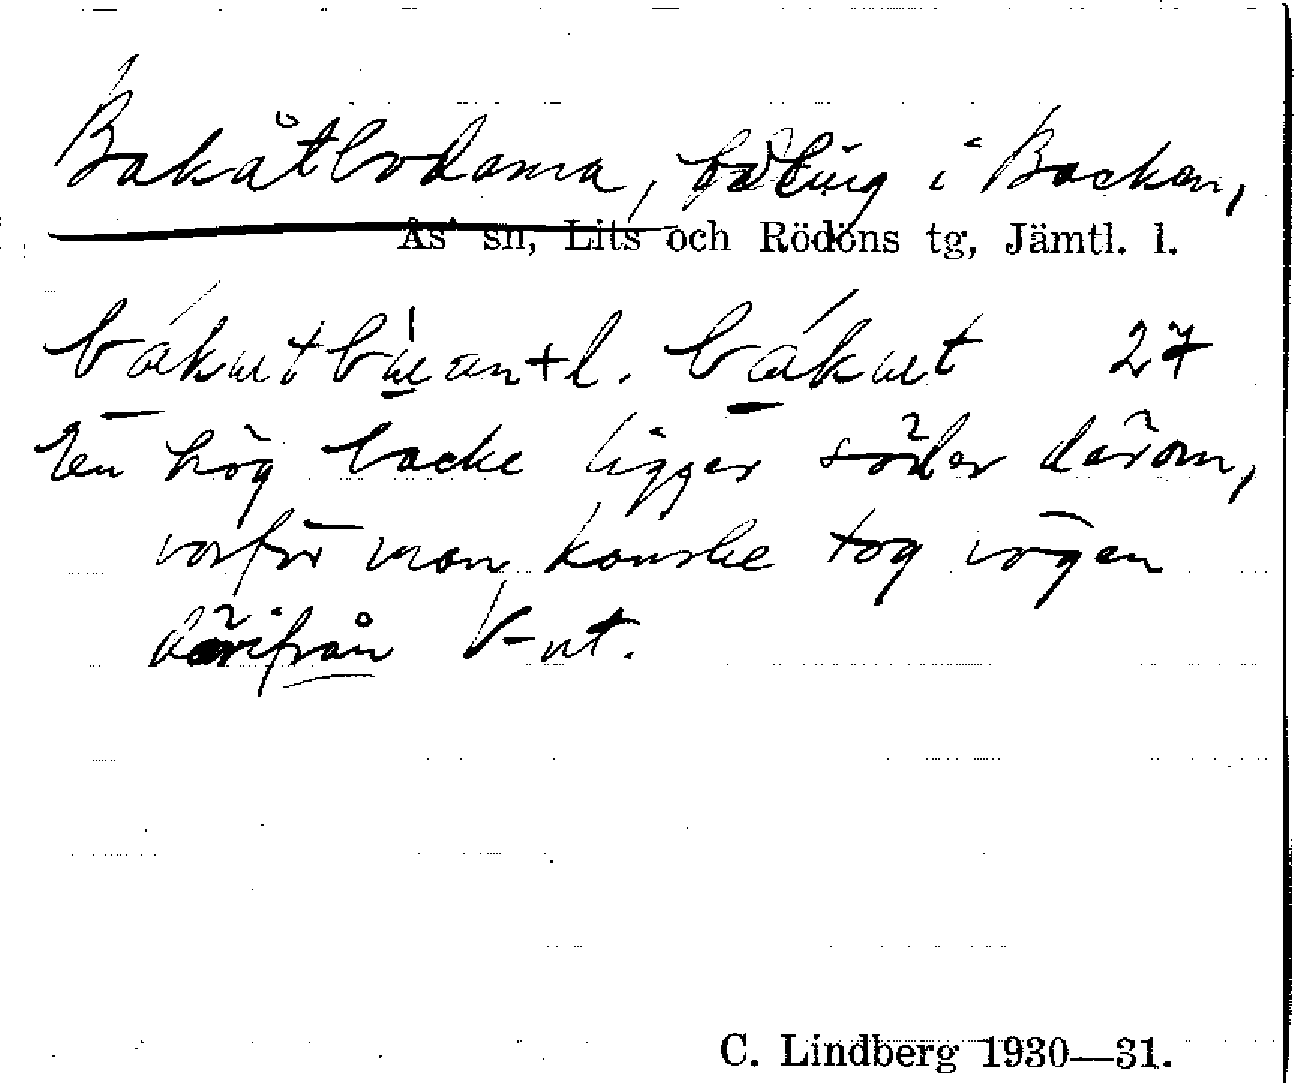 Bakåtbodarna, fäbning i Backen,
Ås' sn, Lits och Rödöns tg, Jämtl. l.
bakut 27
En hög backe ligger söder därom,
varför man kanske tog vägen
därifrån b-ut.
C. Lindberg 1930—31.